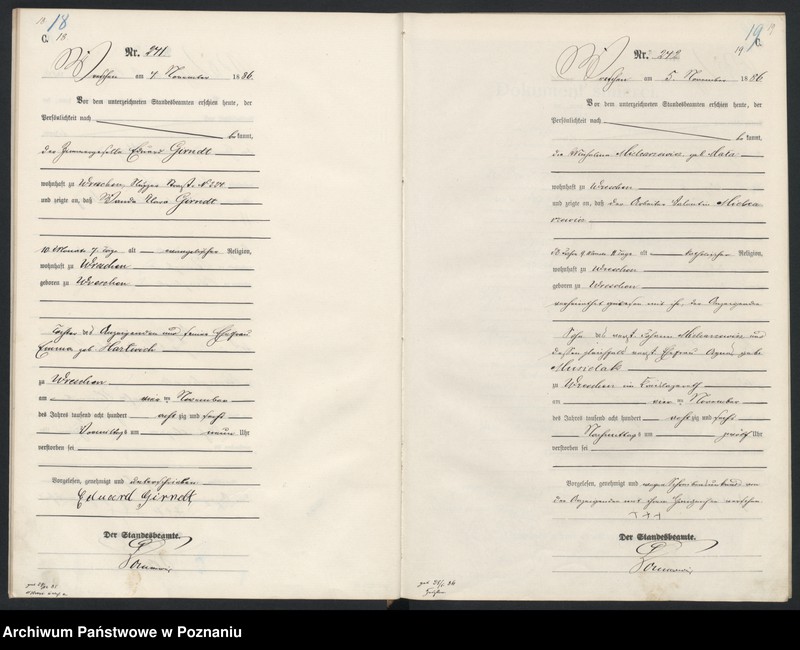 18
C. 18
Nr. 241
Wreschen am 4. November 1886.
Vor dem unterzeichneten Standesbeamten erschien heute, der
Persönlichkeit nach
be kannt,
der Zimmergeselle Eduard Girndt
wohnhaft zu Wreschen,
und zeigte an, daß Wanda Clara Girndt
10 Monate 7 Tage alt evangelischer Religion,
wohnhaft zu Wreschen
geboren zu Wreschen
Tochter des Anzeigenden und seiner Ehefrau
Emma geb.
zu Wreschen
am vier ten November
des Jahres tausend acht hundert acht zig und sechs
Vormittags um neun Uhr
verstorben sei
Vorgelesen, genehmigt und unterschrieben
Eduard Girndt
Der Standesbeamte.
19
19 C.
Nr. 242
Wreschen am 5. November 1886
Vor dem unterzeichneten Standesbeamten erschien heute, der
Persönlichkeit nach
be kannt,
die geb.
wohnhaft zu Wreschen
und zeigte an, daß der Arbeiter Valentin
alt katholischer Religion,
wohnhaft zu Wreschen
geboren zu Wreschen
verheirathet gewesen mit ihr, der Anzeigenden
Sohn des Johann und
dessen gleichfalls Ehefrau geb.
Musielak
zu Wreschen im
am vier ten November
des Jahres tausend acht hundert acht zig und sechs
Nachmittags um zwölf Uhr
verstorben sei
Vorgelesen, genehmigt und wegen Schreibensunkunde von
der Anzeigenden mit ihrem Handzeichen versehen
+++
Der Standesbeamte.
Archiwum Państwowe w Poznaniu